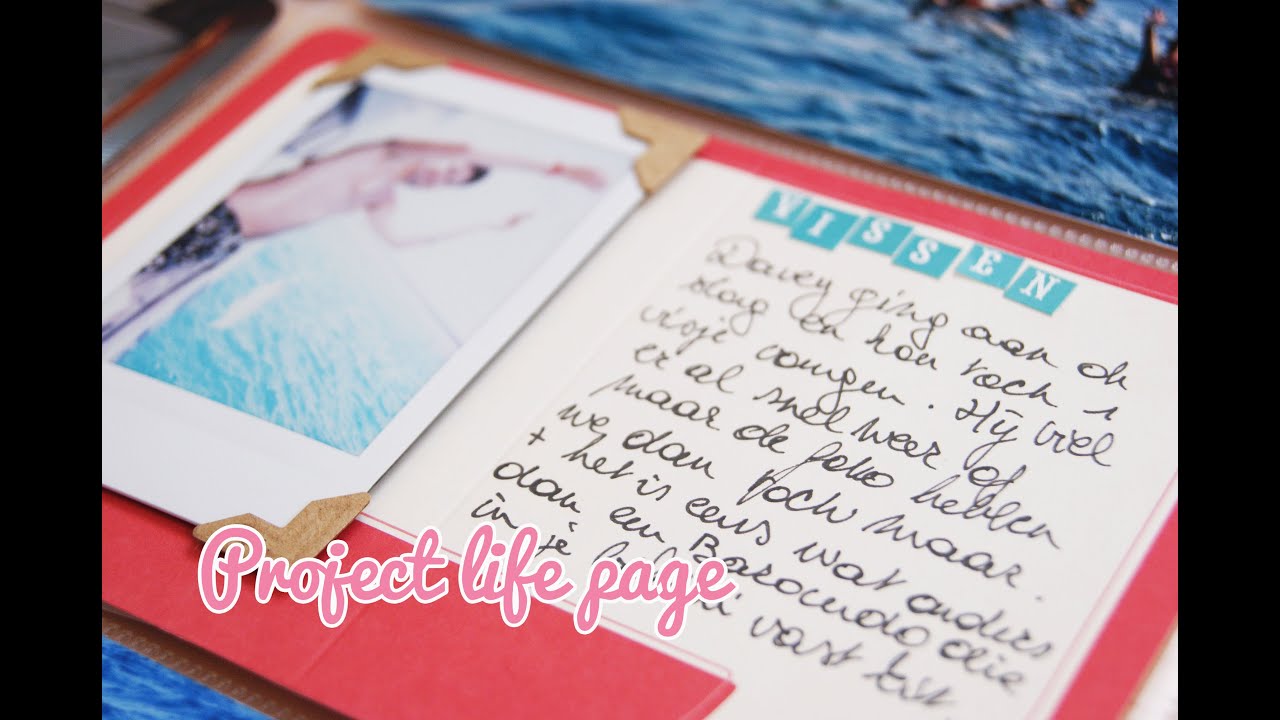 VISSEN
Davey ging aan de
slag en hou toch 1
visje vangen. Hij viel
er al snel weer af
maar de foto hebben
we dan toch maar.
+ het is eens wat anders
dan een Baracuda die
in je vast bijt.
Project life page